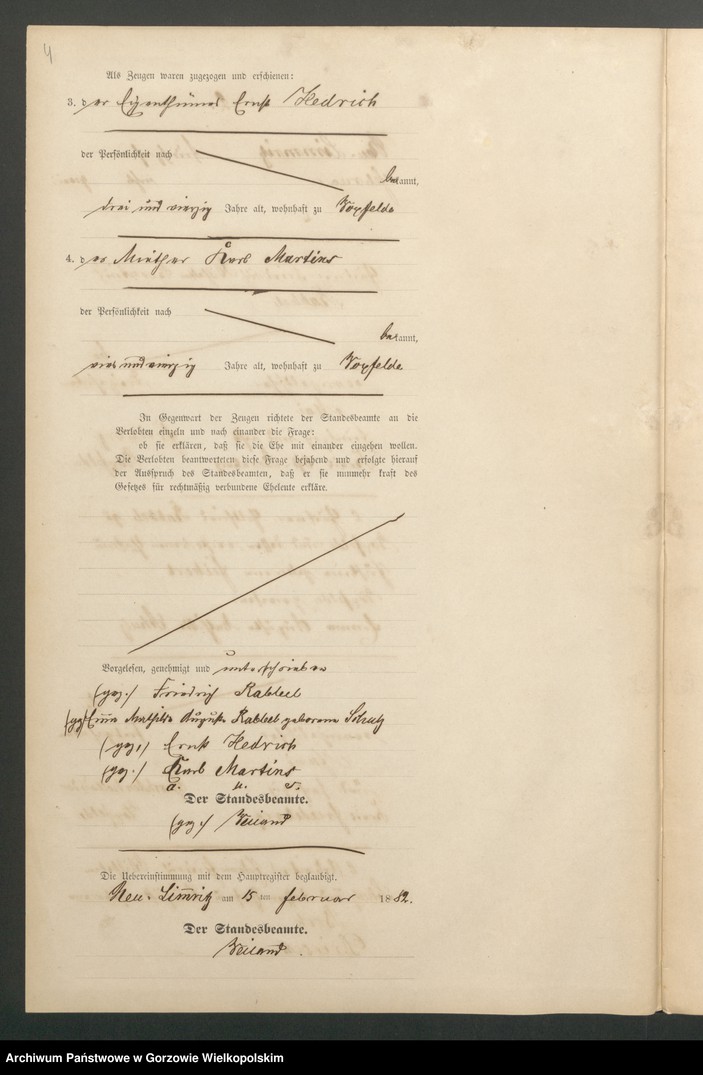 4
Als Zeugen waren zugezogen und erschienen:
3. der Eigenthümer Ernst Hedrich
der Persönlichkeit nach
bekannt,
drei und vierzig Jahre alt, wohnhaft zu Voxfelde
4. der Miether Karl Martins
der Persönlichkeit nach
bekannt,
vierundvierzig Jahre alt, wohnhaft zu Voxfelde
In Gegenwart der Zeugen richtete der Standesbeamte an die
Verlobten einzeln und nach einander die Frage:
ob sie erklären, daß sie die Ehe mit einander eingehen wollen.
Die Verlobten beantworteten diese Frage bejahend und erfolgte hierauf
der Ausspruch des Standesbeamten, daß er sie nunmehr kraft des
Gesetzes für rechtmäßig verbundene Eheleute erkläre.
Vorgelesen, genehmigt und unterschrieben
(gez.) Friedrich Rabbel
(gez) Mathilde Auguste Rabbel geborene Schulz
(gez.) Ernst Hedrich
(gez.) Karl Martins
a. u. s.
Der Standesbeamte.
(gez.) Weiland
Die Uebereinstimmung mit dem Hauptregister beglaubigt.
Neu-Limmritz am 15 ten Februar 1882.
Der Standesbeamte.
Weiland.
Archiwum Państwowe w Gorzowie Wielkopolskim